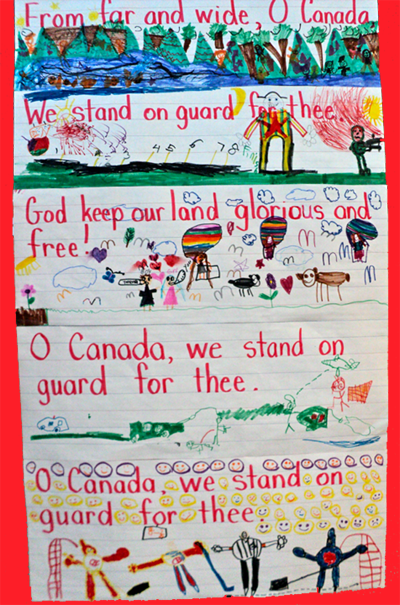 From far and wide, O Canada,
We stand on guard for thee.
4 5 6 7 8
God keep our land glorious and
free!
O Canada, we stand on
guard for thee.
O Canada we stand on
guard for thee